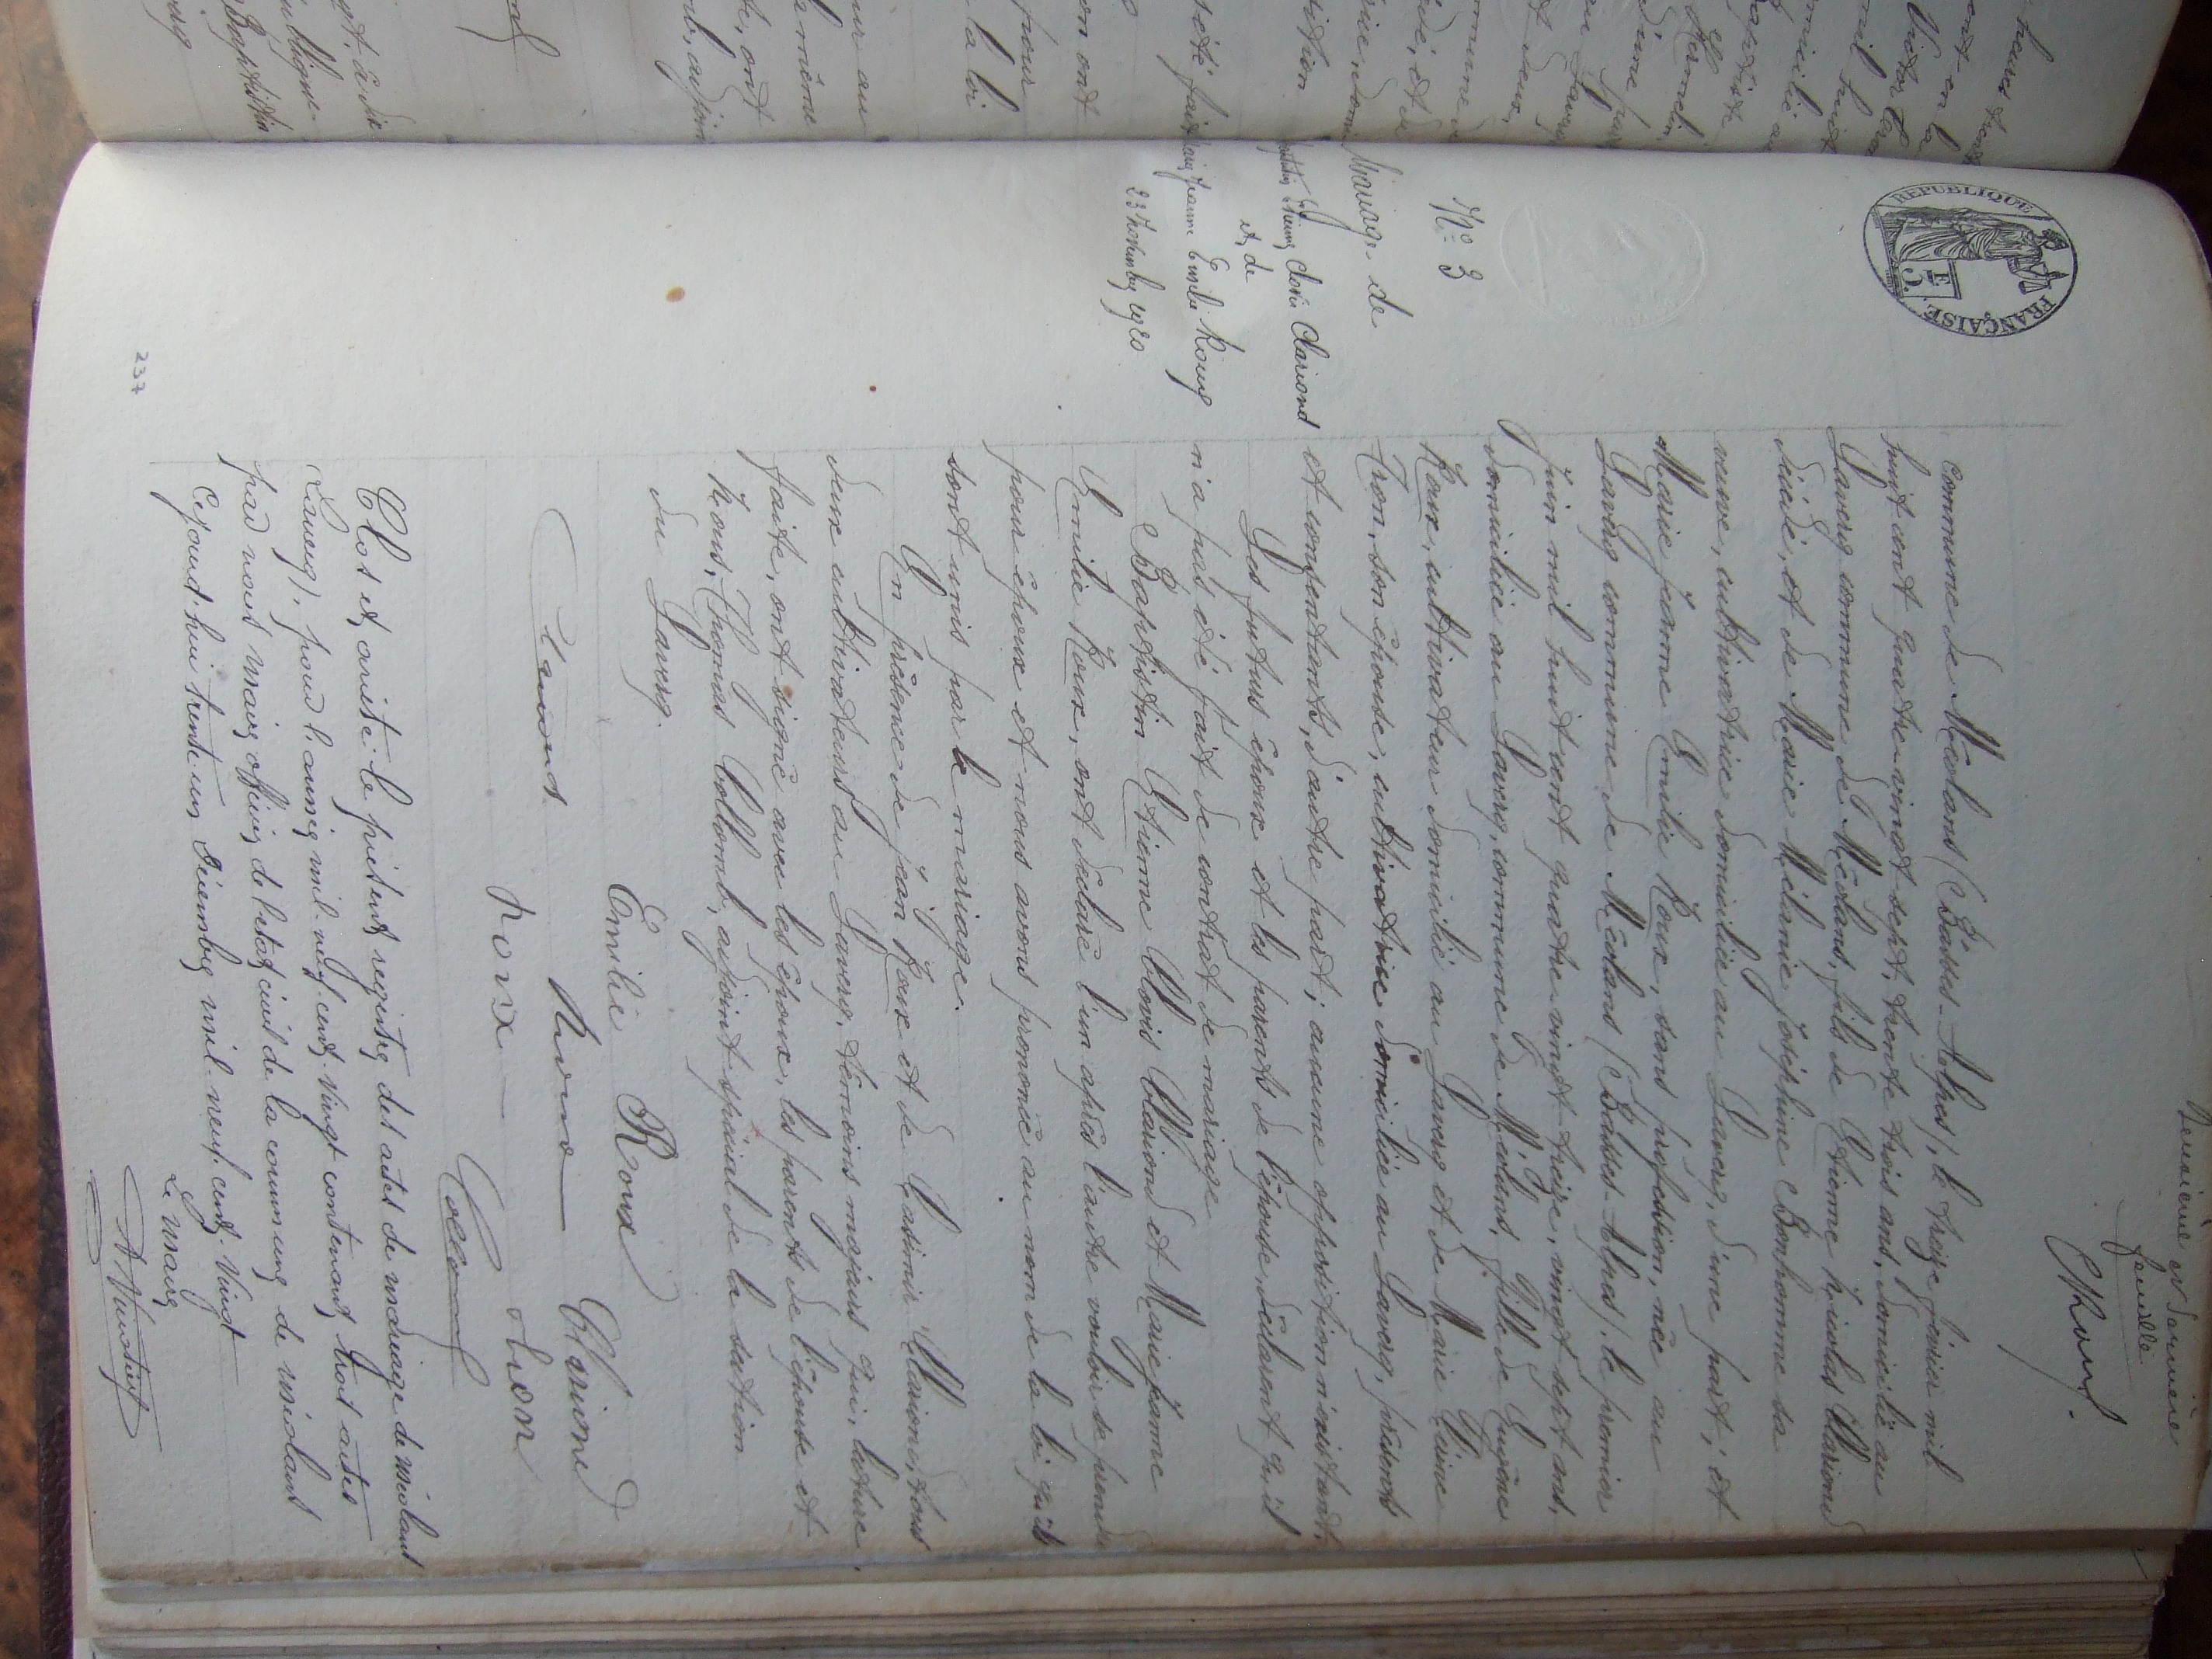 Deuxième et dernière
feuille
CRoux.
REPUBLIQUE FRANÇAISE
commune de Méolans (Basses-Alpes), le treize février mil
huit cent quatre-vingt-sept, trente trois ans, domicilié au
Laverq commune de Méolans, fils de Etienne Nicolas Clariond
décédé, et de Marie Mélanie Joséphine Bonhomme sa
veuve, cultivatrice domiciliée au Laverq, d'une part; et
Marie Jeanne Emilie Roux, sans profession, née au
Laverq commune de Méolans (Basses-Alpes), le premier
juin mil huit cent quatre-vingt-treize, vingt sept ans,
domiciliée au Laverq, commune de Méolans, fille de Eugène
Roux, cultivateur domicilié au Laverq et de Marie Reine
Tron, son épouse, cultivatrice domiciliée au Laverq, présents
et consentants, d'autre part; aucune opposition n'existant.
Les futurs époux et les parents de l'épouse déclarent qu'il
n'a pas été fait de contrat de mariage.
Baptistin Etienne Clovis Clariond et Marie Jeanne
Emilie Roux, ont déclaré l'un après l'autre vouloir se prendre
pour époux et nous avons prononcé au nom de la loi qu'ils
sont unis par le mariage.
En présence de Jean Roux et de Casimir Clariond, tous
deux cultivateurs au Laverq, témoins majeurs qui, lecture
faite, ont signé avec les époux, les parents de l'épouse et
Nous, Thomas Collomb, adjoint spécial de la section
du Laverq.
N° 3
Mariage de
Clovis Clariond
et de
Jeanne Emilie Roux
23 Novembre 1920
Emilie Roux
Clariond
Roux
tron
Clos et arrêté le présent registre des actes de mariage de Méolans
(Laverq), pour l'année mil neuf cent vingt contenant trois actes
par nous maire officier de l'état civil de la commune de Méolans
Cejourd'hui trente un décembre mil neuf cent vingt
Le Maire
237